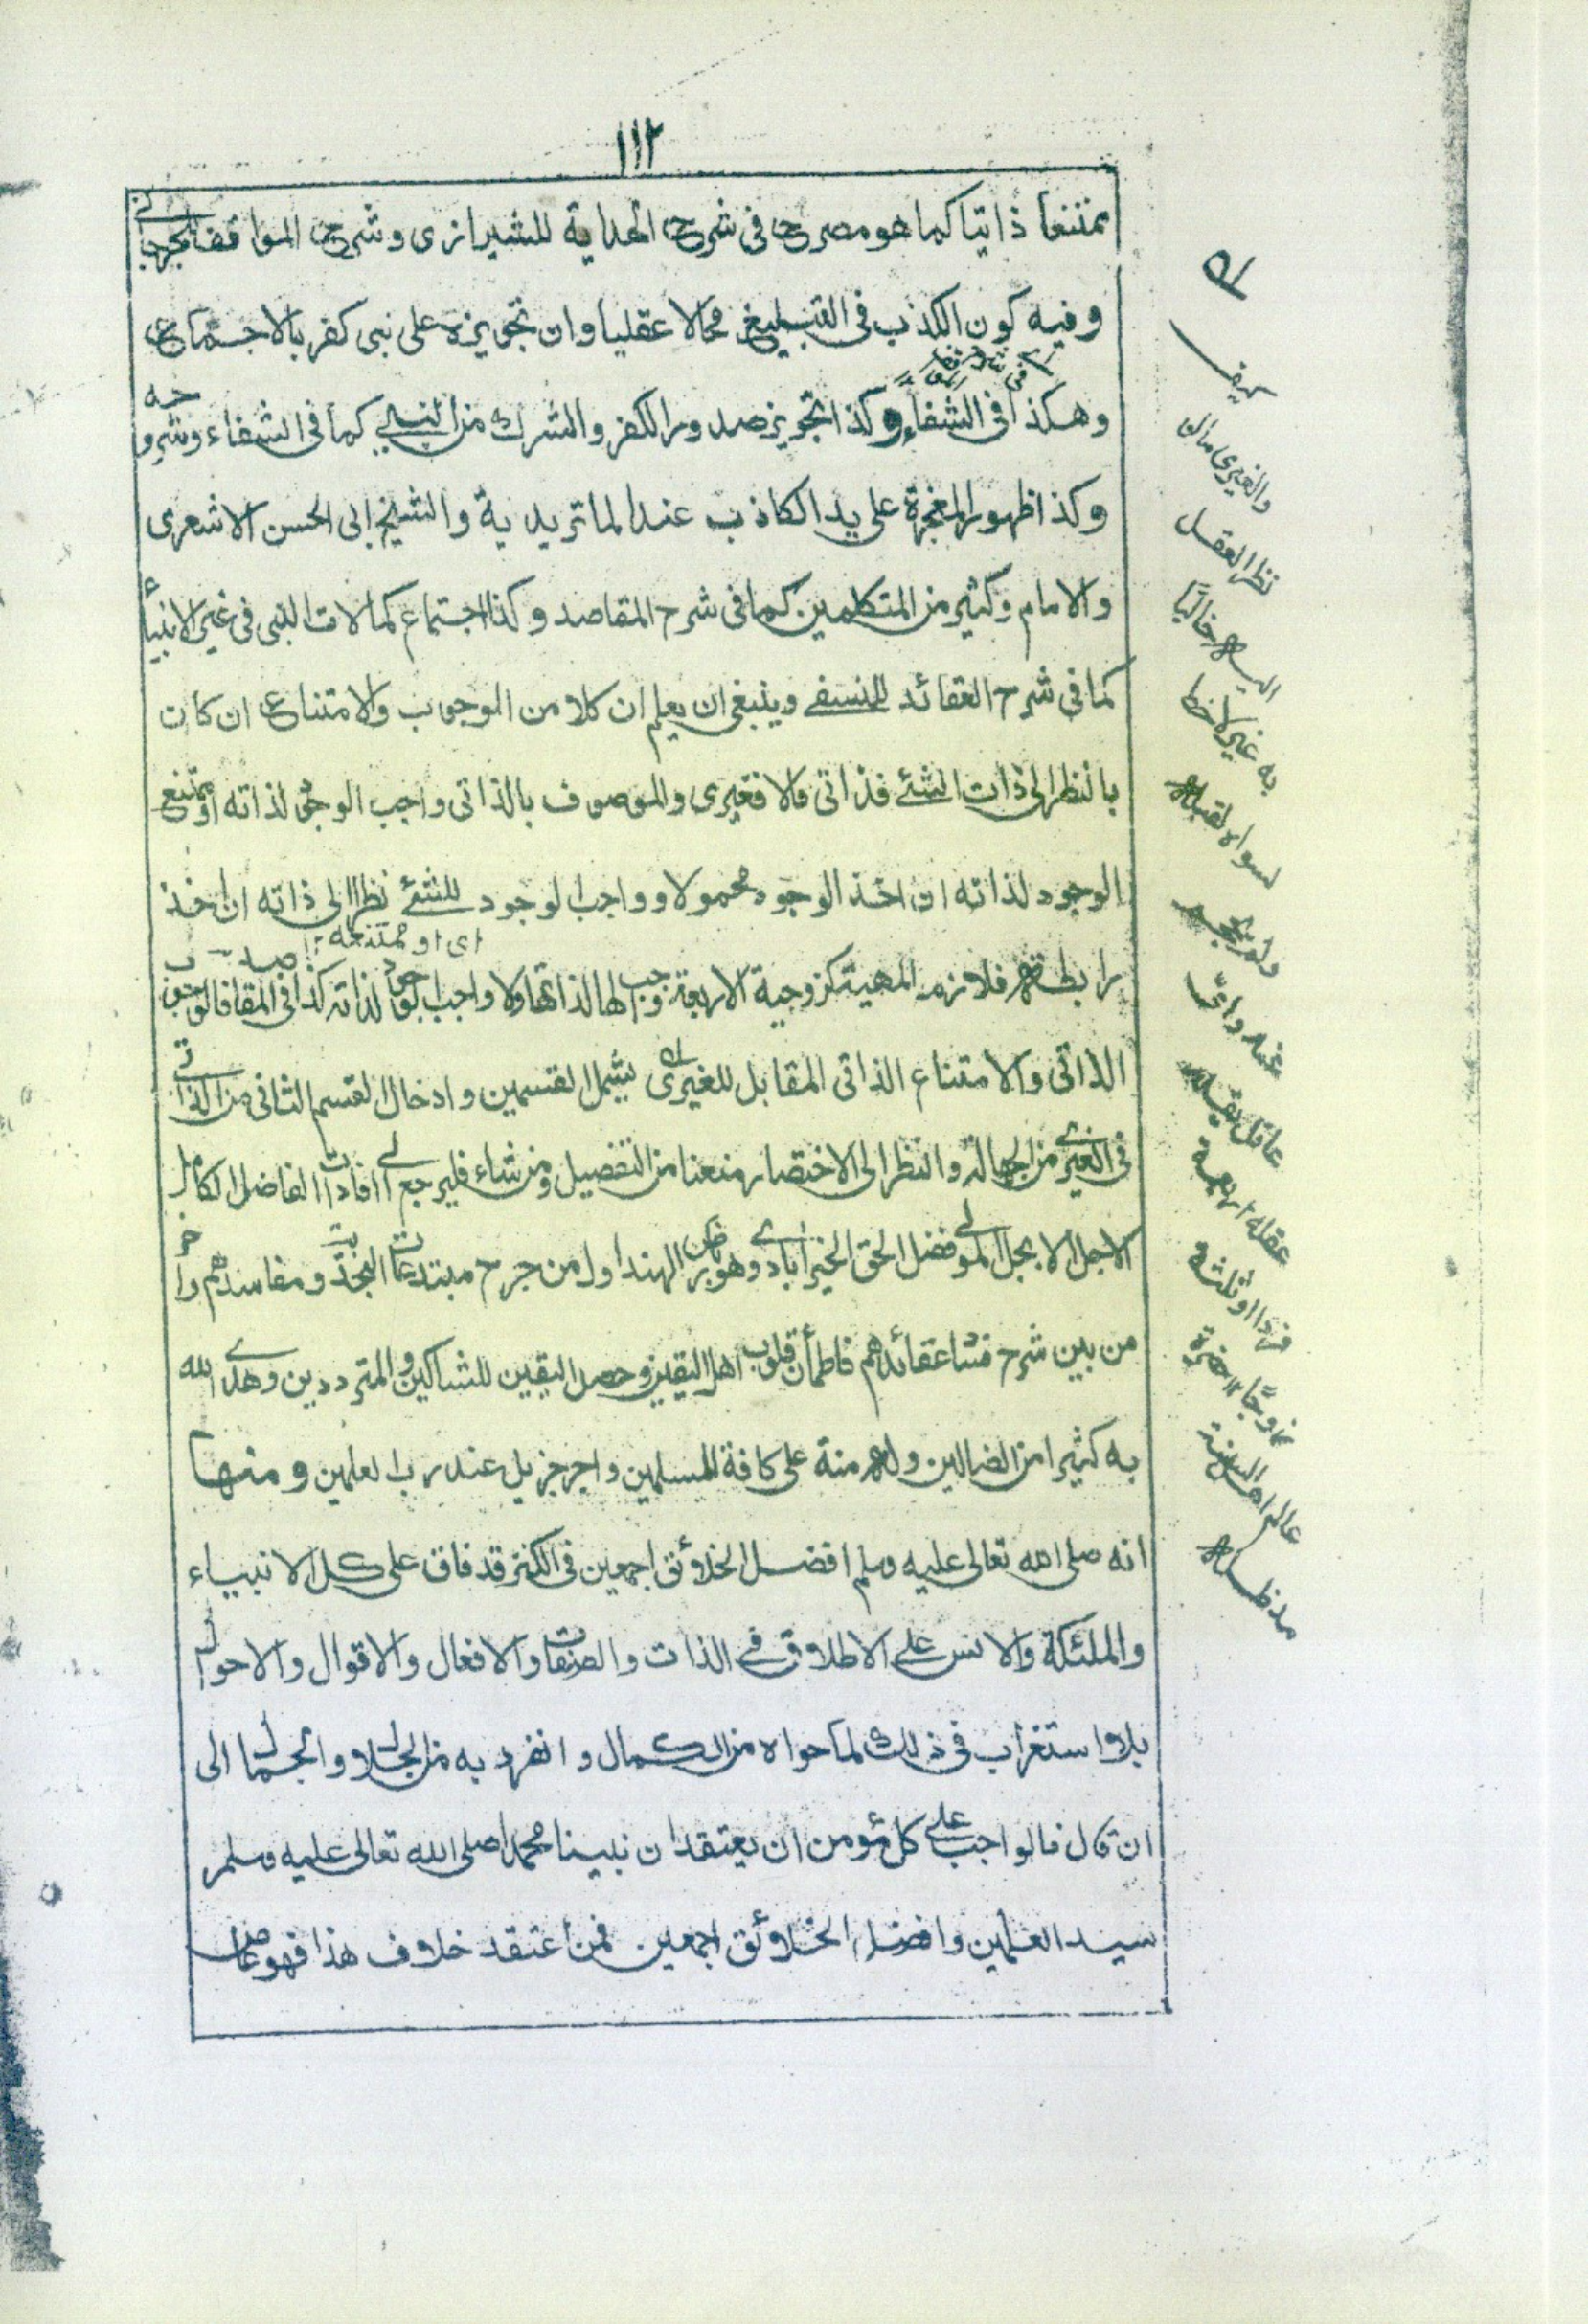 ١١٢
ممتنعا ذاتيا كما هو مصرح فى شرح الهداية للشيرازى وشرح المواقف للجرجانى
وفيه كون الكذب فى التبليغ محالا عقليا وان تجويزه على نبى كفر بالاجماع
وهكذا فى الشفاء وكذا تجويز صدور الكفر والشرك من النبى كما فى الشفاء وشروحه
وكذا ظهور المعجزة على يد الكاذب عند الماتريدية والشيخ ابى الحسن الاشعرى
والامام وكثير من المتكلمين كما فى شرح المقاصد وكذا اجتماع كمالات النبى فى غير الانبياء
كما فى شرح العقائد للنسفى وينبغى ان يعلم ان كلا من الوجوب والامتناع ان كان
بالنظر الى ذات الشئ فذاتى والا فغيرى والموصوف بالذاتى واجب الوجود لذاته او ممتنع
الوجود لذاته ان اخذ الوجود محمولا وواجب الوجود للشئ نظرا الى ذاته ان اخذ
اى او ممتنعه ١٢
رابطة فلازم المهية كزوجية الاربعة واجب لها لذاتها ولا واجب الوجود لذاته كذا فى المقاصد فالوجوب
الذاتى والامتناع الذاتى المقابل للغيرى يشمل القسمين وادخال القسم الثانى من الذاتى
فى الغيرى من الجهالة والنظر الى الاختصار منعنا من التفصيل ومن شاء فليرجع الى افادات الفاضل الكامل
الاجل الابجل المولى فضل الحق الخيرابادى وهو بارض الهند اول من جرح مبتدعات النجدية ومفاسدهم واخر
من بين شرح فشا عقائدهم فاطمأن قلوب اهل اليقين وحصل اليقين للشاكين والمترددين وهدى الله
به كثيرا من الضالين وله منة على كافة المسلمين واجر جزيل عند رب العلمين ومنها
انه صلى الله تعالى عليه وسلم افضل الخلائق اجمعين فى الكنز قد فاق على كل الانبياء
والملئكة والانس على الاطلاق فى الذات والصفات والافعال والاقوال والاحوال
بلا استغراب فى ذلك لما حواه من الكمال وانفرد به من الجلال والجمال الى
ان قال فالواجب على كل مؤمن ان يعتقد ان نبينا محمدا صلى الله تعالى عليه وسلم
سيد العلمين وافضل الخلائق اجمعين فمن اعتقد خلاف هذا فهو عاص
كيف
والغيرى ما لو
نظر العقل
اليه خاليا
به غير لاحظ
لسواه لقبله
ولم يجد
عند
عاقل يقبل
عقله اربعة
فردا او ثلثة
زوجا ١٢ حضرة
عالم اهل السنة
مد ظله